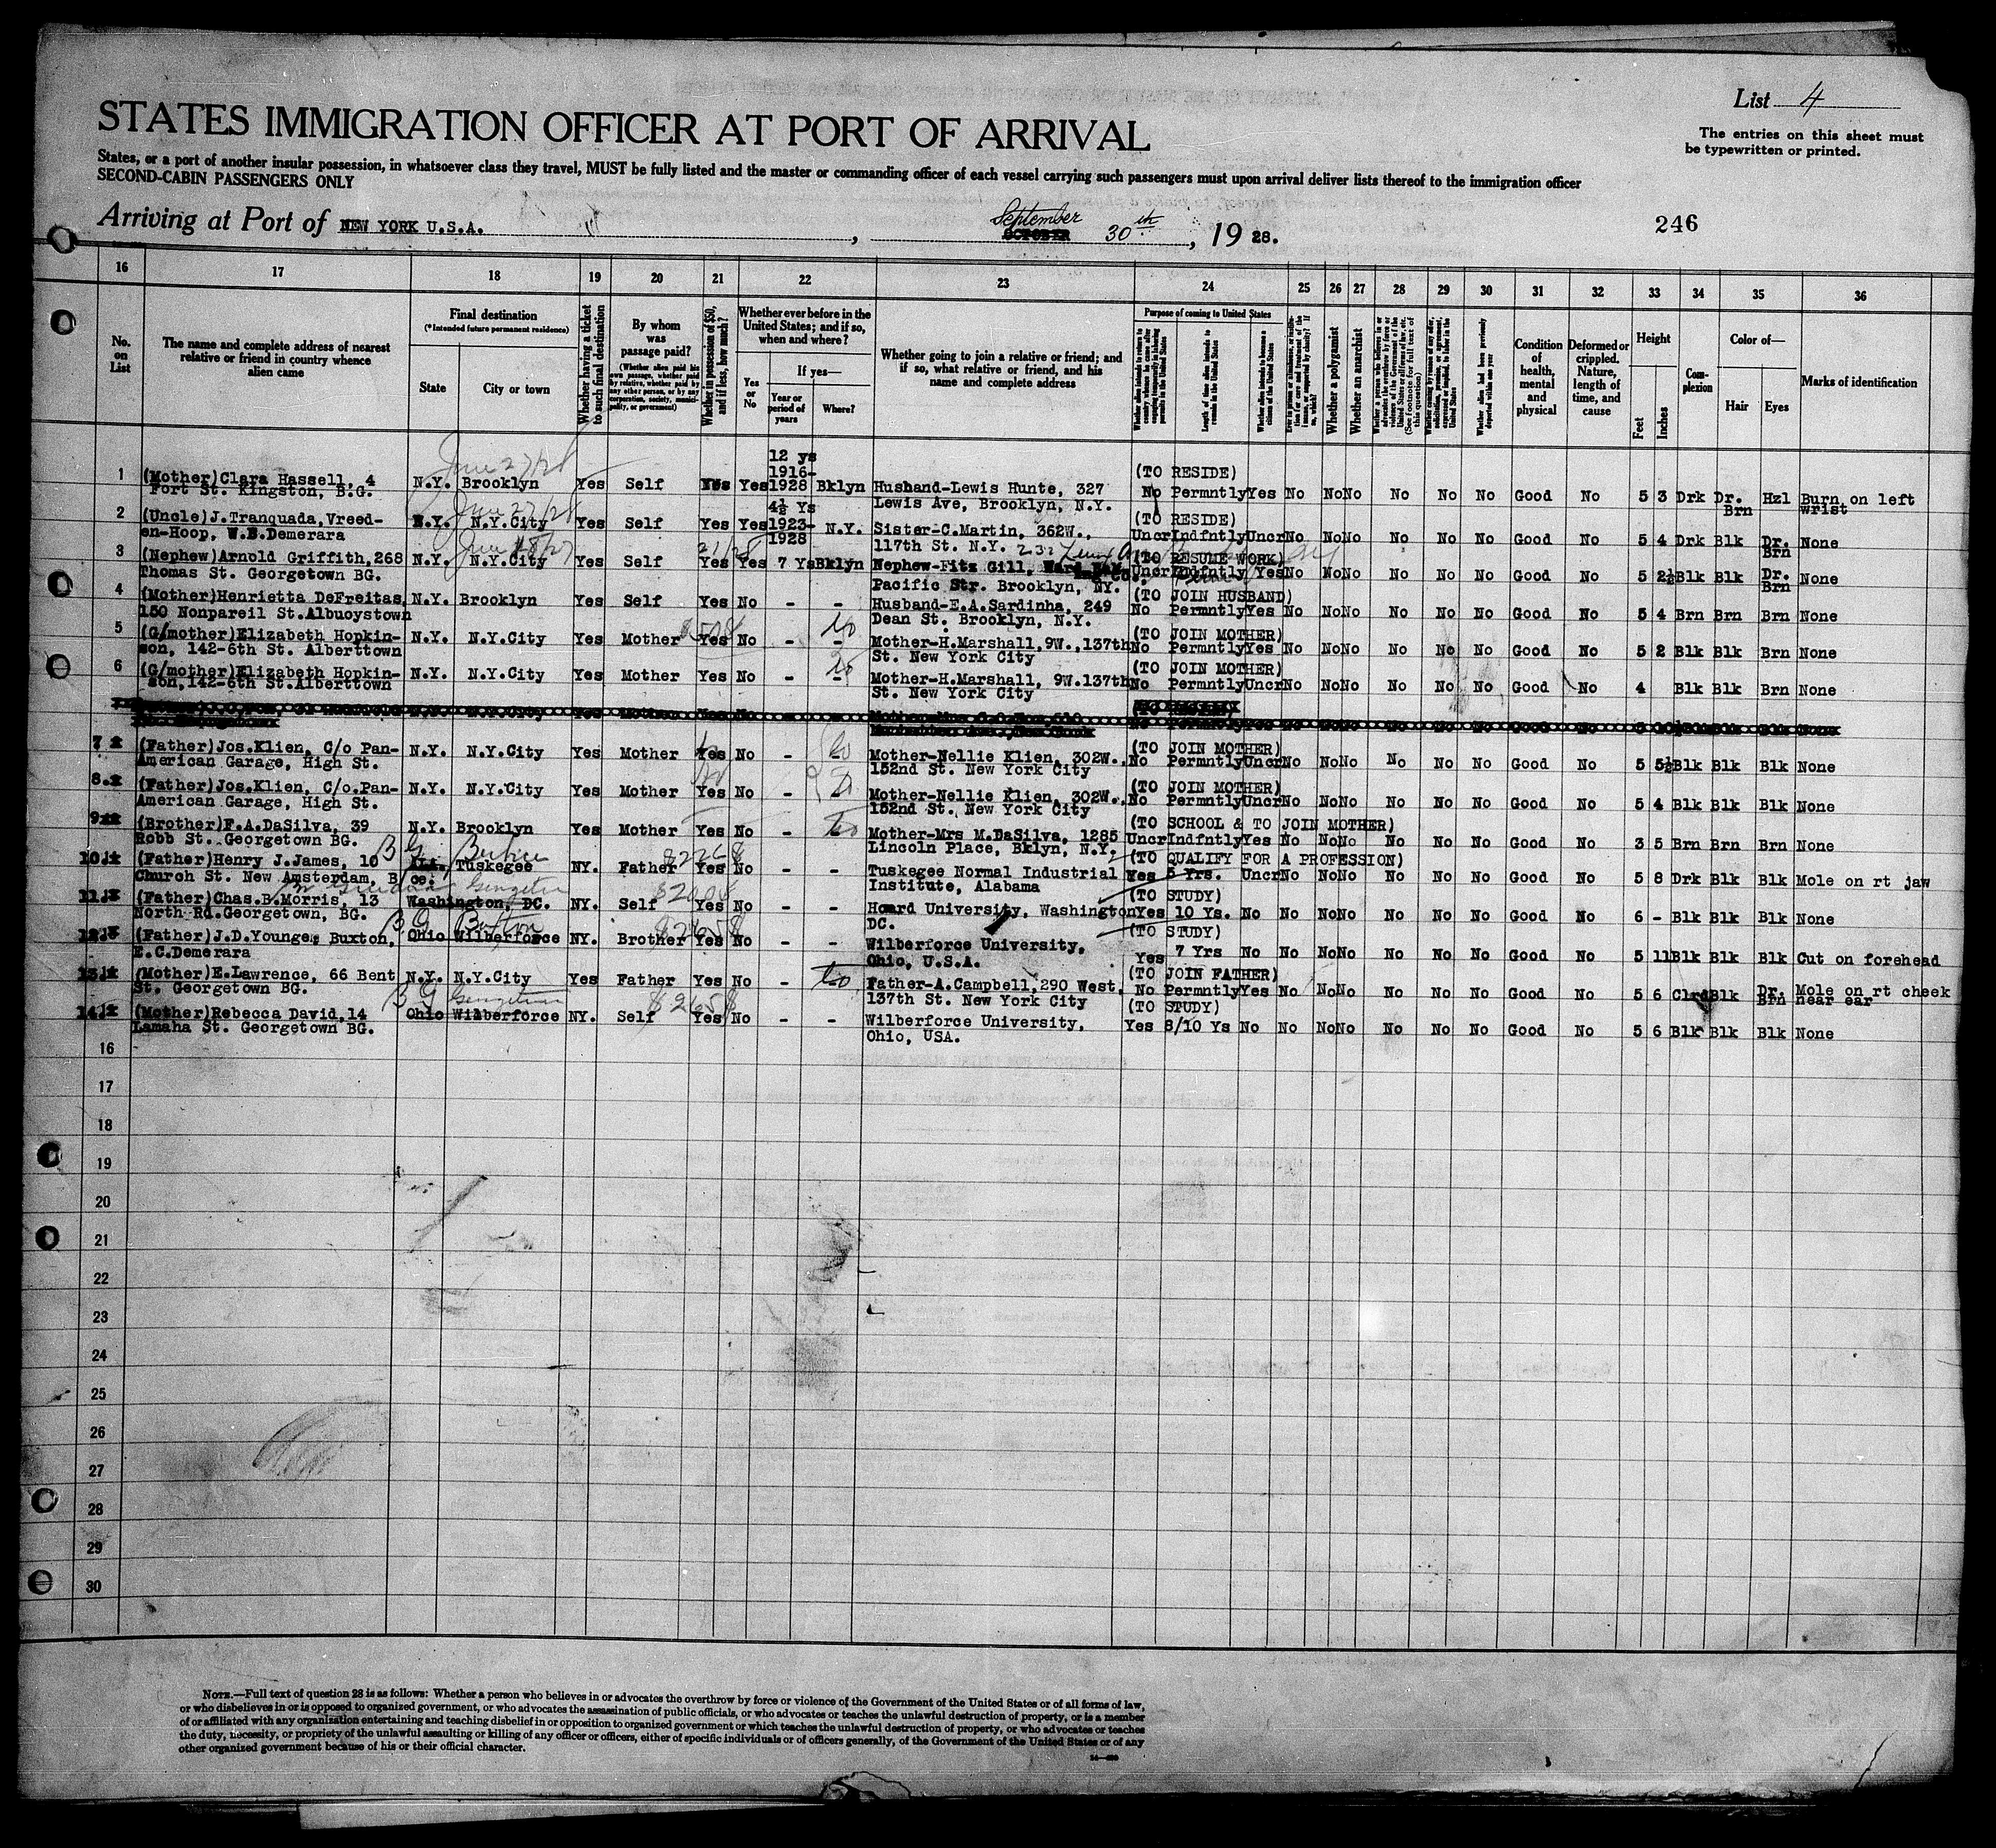 List 4
The entries on this sheet must
be typewritten or printed.
STATES IMMIGRATION OFFICER AT PORT OF ARRIVAL
States, or a port of another insular possession, in whatsoever class they travel, MUST be fully listed and the master or commanding officer of each vessel carrying such passengers must upon arrival deliver lists thereof to the immigration officer
SECOND-CABIN PASSENGERS ONLY
Arriving at Port of NEW YORK U.S.A. , September OCTOBER 30th , 19 28.
246
16 17 18 19 20 21 22 23 24 25 26 27 28 29 30 31 32 33 34 35 36
No. on List
The name and complete address of nearest relative or friend in country whence alien came
Final destination
(*Intended future permanent residence)
State City or town
Whether having a ticket to such final destination
By whom was passage paid?
(Whether alien paid his own passage, whether paid by relative, whether paid by any other person, or by any corporation, society, municipality, or government)
Whether in possession of $50, and if less, how much?
Whether ever before in the United States; and if so, when and where?
Yes or No
If yes—
Year or period of years
Where?
Whether going to join a relative or friend; and if so, what relative or friend, and his name and complete address
Purpose of coming to United States
Length of time alien intends to remain in the United States
Whether alien intends to become a citizen of the United States
Whether a polygamist
Whether an anarchist
(See footnote for full text of this question)
Whether alien had been previously deported within one year
Condition of health, mental and physical
Deformed or crippled. Nature, length of time, and cause
Height
Feet Inches
Complexion
Color of—
Hair Eyes
Marks of identification
June 27/28
12 ys
1916-
1 (Mother)Clara Hassell, 4 N.Y. Brooklyn Yes Self Yes Yes 1928 Bklyn Husband-Lewis Hunte, 327 (TO RESIDE)
Fort St. Kingston, B.G. Lewis Ave, Brooklyn, N.Y. No Permntly Yes No No No No No No Good No 5 3 Drk Dr. Brn Hzl Burn on left wrist
June 27/28
4½ Ys
2 (Uncle)J.Tranquada,Vreed- N.Y. N.Y.City Yes Self Yes Yes 1923- N.Y. Sister-C.Martin, 362W., (TO RESIDE)
en-Hoop, W.B.Demerara 1928 117th St. N.Y. Uncr Indfntly Uncr No No No No No No Good No 5 4 Drk Blk Dr. Brn None
3 (Nephew)Arnold Griffith,268 N.Y. N.Y.City Yes Self Yes Yes 7 Ys Bklyn Nephew-Fitz Gill, (TO RESUME WORK)
Thomas St. Georgetown BG. Pacific Str. Brooklyn, NY. Uncr Indfntly Yes No No No No No No Good No 5 2½ Blk Blk Dr. Brn None
4 (Mother)Henrietta DeFreitas, N.Y. Brooklyn Yes Self Yes No - - Husband-E.A.Sardinha, 249 (TO JOIN HUSBAND)
150 Nonpareil St.Albuoystown Dean St. Brooklyn, N.Y. No Permntly Yes No No No No No No Good No 5 4 Brn Brn Brn None
5 (G/mother)Elizabeth Hopkin- N.Y. N.Y.City Yes Mother Yes No - - Mother-H.Marshall,9W.,137th (TO JOIN MOTHER)
son, 142-6th St. Alberttown St. New York City No Permntly Yes No No No No No No Good No 5 2 Blk Blk Brn None
6 (G/mother)Elizabeth Hopkin- N.Y. N.Y.City Yes Mother Yes No - - Mother-H.Marshall, 9W.137th (TO JOIN MOTHER)
son,142-6th St.Alberttown St. New York City No Permntly Uncr No No No No No No Good No 4 Blk Blk Brn None
7 (Father)Jos.Klien, C/o Pan- N.Y. N.Y.City Yes Mother Yes No - Mother-Nellie Klien, 302W., (TO JOIN MOTHER)
American Garage, High St. 152nd St. New York City No Permntly Uncr No No No No No No Good No 5 5½ Blk Blk Blk None
8 (Father)Jos.Klien, C/o.Pan- N.Y. N.Y.City Yes Mother Yes No - Mother-Nellie Klien, 302W., (TO JOIN MOTHER)
American Garage, High St. 152nd St. New York City No Permntly Uncr No No No No No No Good No 5 4 Blk Blk Blk None
9 (Brother)F.A.DaSilva, 39 N.Y. Brooklyn Yes Mother Yes No - Mother-Mrs M.DaSilva, 1285 (TO SCHOOL & TO JOIN MOTHER)
Robb St. Georgetown BG. Lincoln Place, Bklyn, N.Y. Uncr Indfntly Yes No No No No No No Good No 3 5 Brn Brn Brn None
BG Berbice
10 (Father)Henry J.James, 10 Ala. Tuskegee NY. Father Yes No - - Tuskegee Normal Industrial (TO QUALIFY FOR A PROFESSION)
Church St. New Amsterdam, B ce. Institute, Alabama Yes 5 Yrs. Uncr No No No No No No Good No 5 8 Drk Blk Blk Mole on rt jaw
$200
11 (Father)Chas.B.Morris, 13 Washington, DC. NY. Self Yes No - - Hoard University, Washington (TO STUDY)
North Rd.Georgetown, BG. DC. Yes 10 Ys. No No No No No No No Good No 6 - Blk Blk Blk None
BG Buxton
$265
12 (Father)J.D.Younge, Buxton, Ohio Wilberforce NY. Brother Yes No - - Wilberforce University, (TO STUDY)
E.C.Demerara Ohio, U.S.A. Yes 7 Yrs No No No No No No No Good No 5 11 Blk Blk Blk Cut on forehead
13 (Mother)E.Lawrence, 66 Bent N.Y. N.Y.City Yes Father Yes No - Father-A.Campbell,290 West, (TO JOIN FATHER)
St. Georgetown BG. 137th St. New York City No Permntly Yes No No No No No No Good No 5 6 Clrd Blk Dr. Brn Mole on rt cheek near ear
BG Georgetown
$265
14 (Mother)Rebecca David,14 Ohio Wilberforce NY. Self Yes No - - Wilberforce University, (TO STUDY)
Lamaha St. Georgetown BG. Ohio, USA. Yes 8/10 Ys No No No No No No No Good No 5 6 Blk Blk Blk None
16
17
18
19
20
21
22
23
24
25
26
27
28
29
30
NOTE.—Full text of question 28 is as follows: Whether a person who believes in or advocates the overthrow by force or violence of the Government of the United States or of all forms of law,
or who disbelieves in or is opposed to organized government, or who advocates the assassination of public officials, or who advocates or teaches the unlawful destruction of property, or is a member
of or affiliated with any organization entertaining and teaching disbelief in or opposition to organized government or which teaches the unlawful destruction of property, or who advocates or teaches
the duty, necessity, or propriety of the unlawful assaulting or killing of any officer or officers, either of specific individuals or of officers generally, of the Government of the United States or of any
other organized government because of his or their official character.